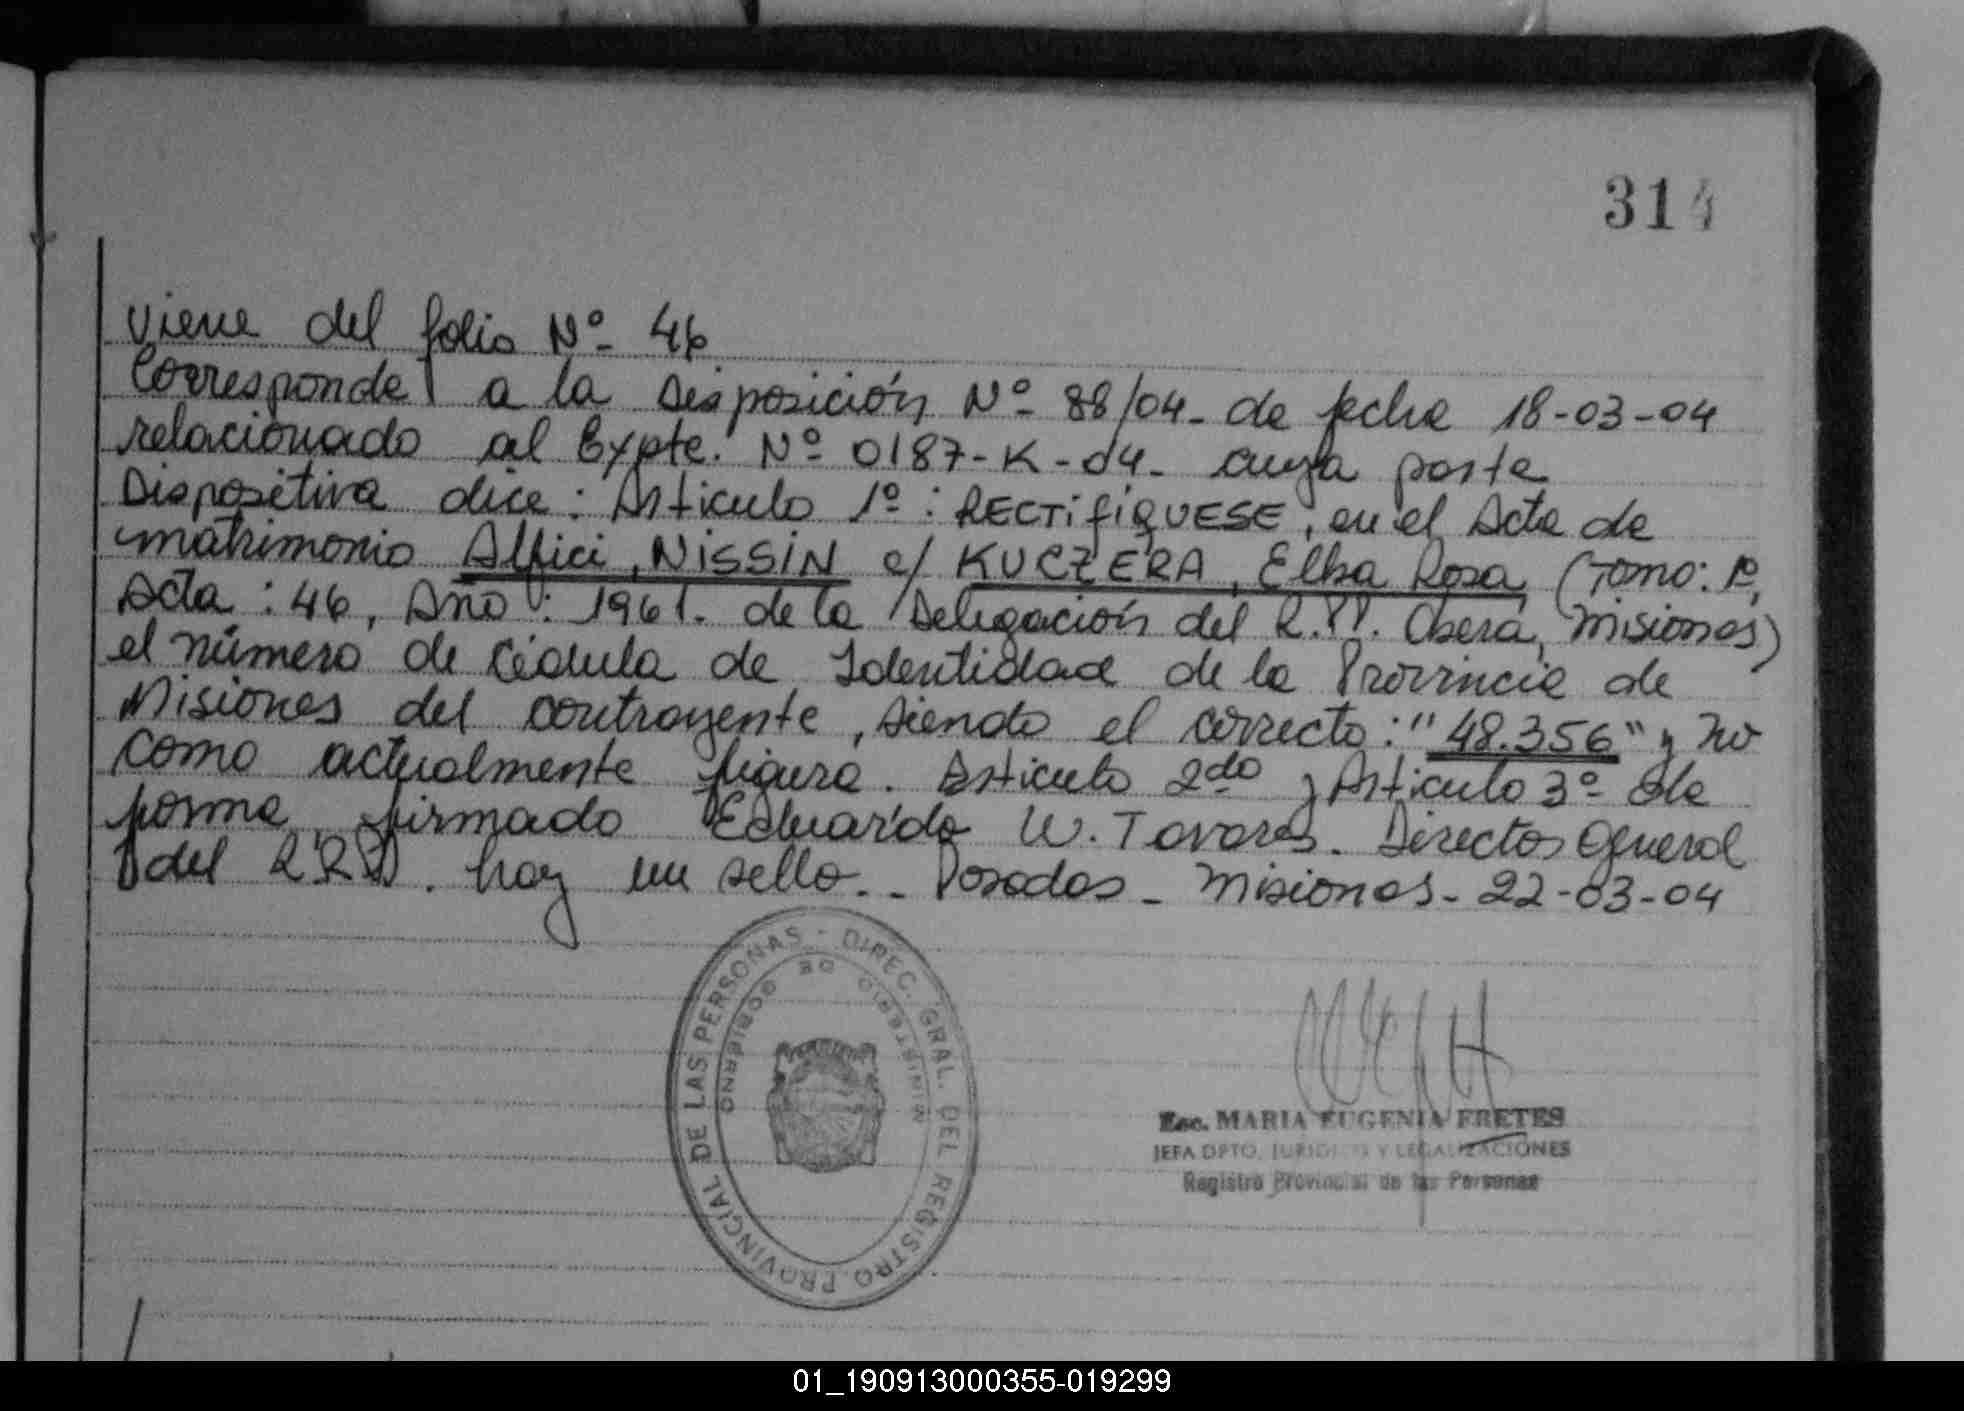 314
Viene del folio Nº 46
Corresponde a la Disposición Nº 88/04 - de fecha 18-03-04
relacionado al Expte. Nº 0187-K-04 - cuya parte
Dispositiva dice: Articulo 1º: RECTiFiQUESE, en el Acta de
matrimonio Alfici, NiSSiN c/ KUCZERA, Elba Rosa, (Tomo: 1º,
Acta: 46, Año: 1961. de la Delegación del R.PP. Obera, Misiones)
el número de Cédula de Identidad de la Provincia de
Misiones del contrayente, siendo el correcto: "48.356" y no
como actualmente figura. Articulo 2do y Articulo 3º de
forma firmado Eduardo W. Tavares. Director General
del R.P. hay un sello. - Posadas - Misiones - 22-03-04
DIREC. GRAL. DEL REGISTRO PROVINCIAL DE LAS PERSONAS -
MINISTERIO DE GOBIERNO
Esc. MARIA EUGENIA FRETES
JEFA DPTO. JURIDICO Y LEGALIZACIONES
Registro Provincial de las Personas
01_190913000355-019299